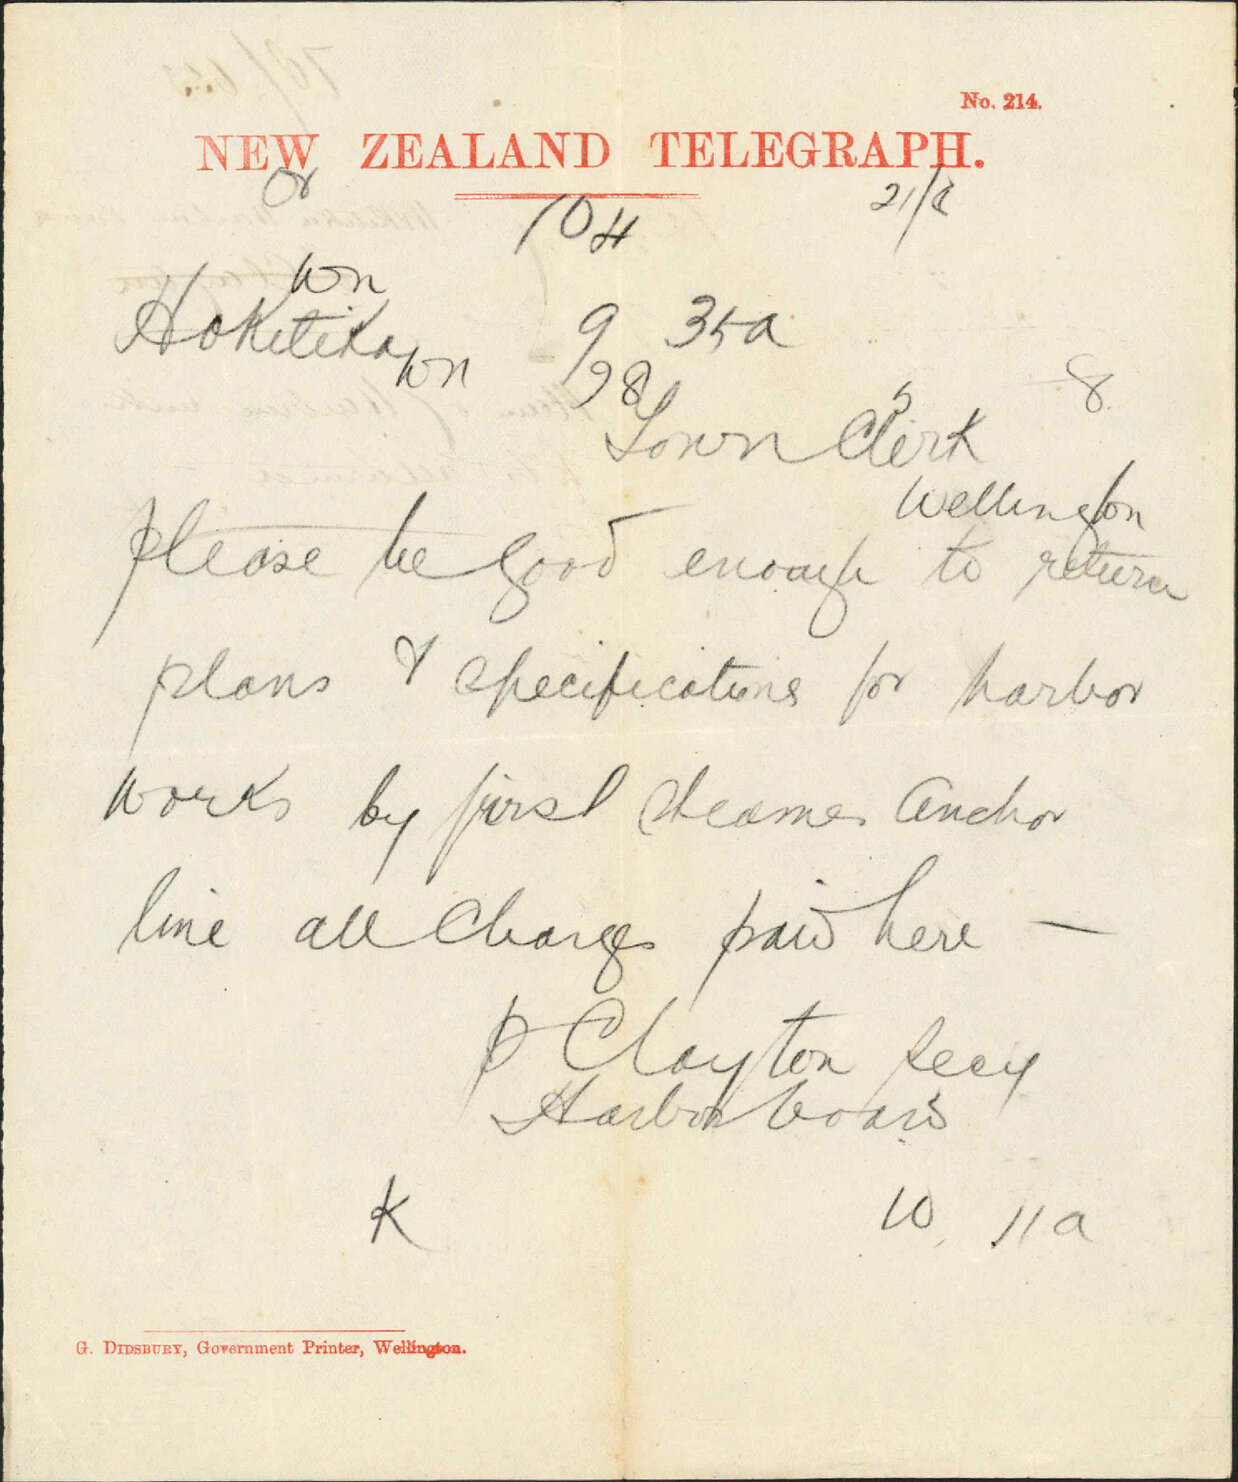 No. 214.
NEW ZEALAND TELEGRAPH.
21/8
104
Wn
Hokitika Wn 9 35a
28 8
Town Clerk
Wellington
please be good enough to return
plans & specifications for harbor
works by first steamer anchor
line all charges paid here —
Clayton secy
Harbor board
K 10 11a
G. DIDSBURY, Government Printer, Wellington.